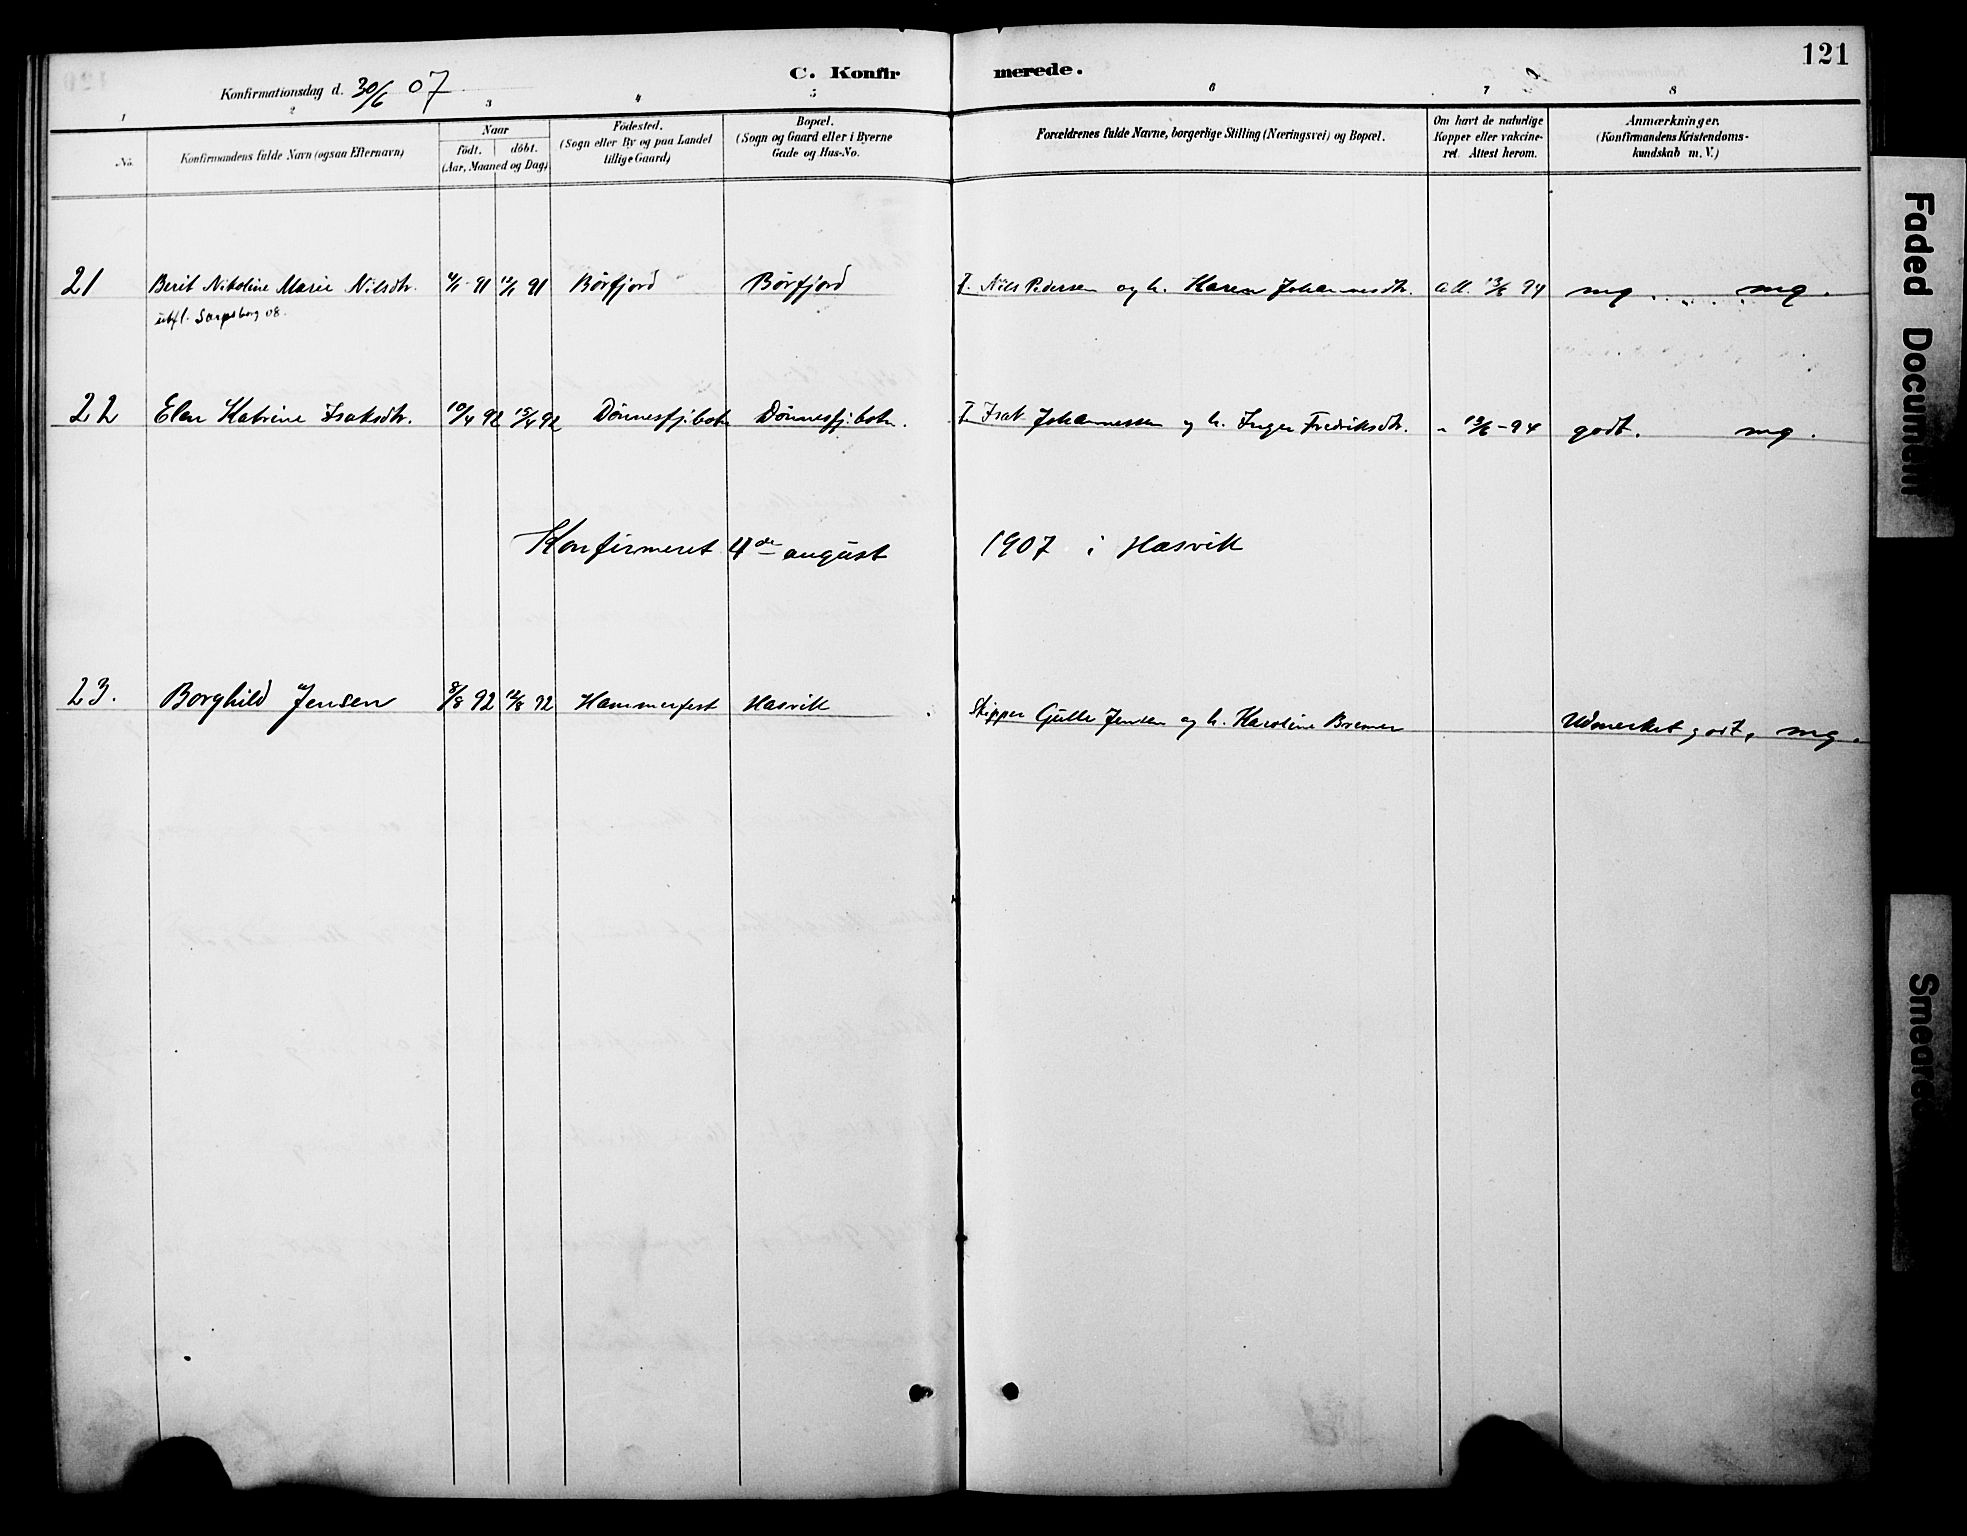 121
Konfirmationsdag d. 30/6 07
C. Konfirmerede.
1 2 3 4 5 6 7 8
No.
Konfirmandens fulde Navn (ogsaa Efternavn)
Naar
født. døbt.
(Aar, Maaned og Dag)
Fødested.
(Sogn eller By og paa Landet
tillige Gaard)
Bopæl.
(Sogn og Gaard eller i Byerne
Gade og Hus-No.
Forældrenes fulde Navne, borgerlige Stilling (Næringsvei) og Bopæl.
Om havt de naturlige
Kopper eller vakcine-
ret. Attest herom.
Anmærkninger.
(Konfirmandens Kristendoms-
kundskab m. V.)
21 Berit Nikoline Marie Nilsdtr. 91 91 Børfjord Børfjord F. Nils Pedersen og h. Karen Johannesdtr. att. 13/6 94 mg. mg.
utfl. Sarpsborg 08.
22 Elen Katrine Isaksdtr. 10/4 92 15/4 92 Dønnesfj.botn Dønnesfj.botn. F. Isak Johannessen og h. Inger Fredriksdtr. - 13/6 - 94 godt. mg.
Konfirmeret 4de august 1907 i Hasvik
23. Borghild Jensen 8/8 92 12/8 92 Hammerfest Hasvik Skipper Gulle Jensen og h. Karoline Bremer Udmerket godt, mg.
Faded Document
Smeared